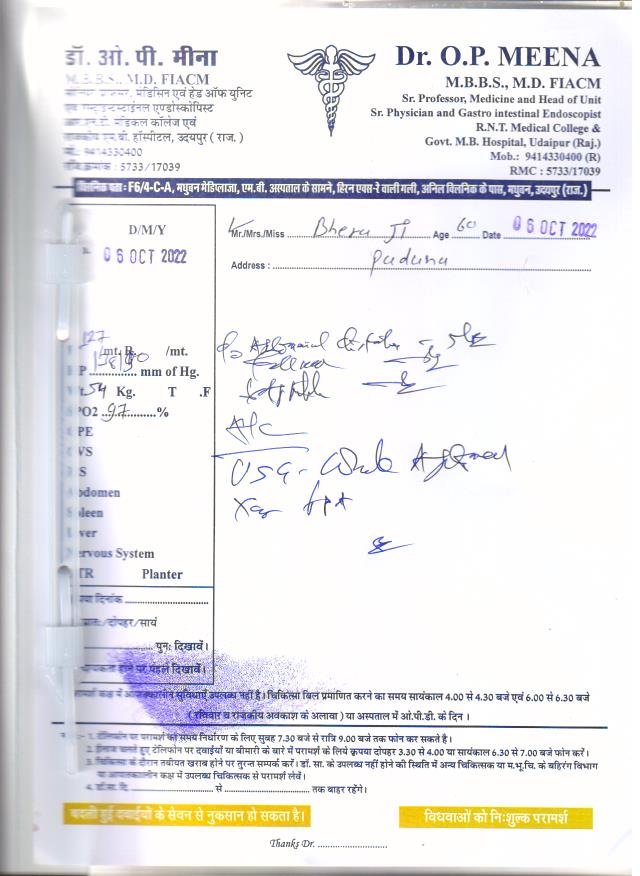 डॉ. ओ. पी. मीना
M.B.B.S., M.D. FIACM
प्रोफेसर, मेडिसिन एवं हेड ऑफ युनिट
एण्डोस्कोपिस्ट
मेडिकल कॉलेज एवं
राजकीय एम.बी. हॉस्पीटल, उदयपुर ( राज. )
9414330400
क्रमांक : 5733/17039
Dr. O.P. MEENA
M.B.B.S., M.D. FIACM
Sr. Professor, Medicine and Head of Unit
Sr. Physician and Gastro intestinal Endoscopist
R.N.T. Medical College &
Govt. M.B. Hospital, Udaipur (Raj.)
Mob.: 9414330400 (R)
RMC : 5733/17039
क्लिनिक पता : F6/4-C-A, मधुबन मेडिप्लाजा, एम.बी. अस्पताल के सामने, हिरन एक्स-रे वाली गली, अनिल क्लिनिक के पास, मधुबन, उदयपुर (राज.)
D/M/Y
06 OCT 2022
Mr./Mrs./Miss Bheru Ji Age 60 Date 06 OCT 2022
Address : Paduna
/mt. R. /mt.
mm of Hg.
54 Kg. T .F
PO2 97 %
PE
VS
S
bdomen
pleen
iver
ervous System
TR Planter
USG - Whole Abdomen
Xray
दिनांक
प्रातः/दोपहर/सायं
पुनः दिखावें।
होने पर पहले दिखावें।
परामर्श कक्ष में आपातकालीन सुविधाएँ उपलब्ध नहीं है। चिकित्सा बिल प्रमाणित करने का समय सायंकाल 4.00 से 4.30 बजे एवं 6.00 से 6.30 बजे
( रविवार व राजकीय अवकाश के अलावा ) या अस्पताल में ओ.पी.डी. के दिन ।
1. टेलिफोन पर परामर्श का समय निर्धारण के लिए सुबह 7.30 बजे से रात्रि 9.00 बजे तक फोन कर सकते है।
2. ईलाज चलते हुए टेलिफोन पर दवाईयों या बीमारी के बारे में परामर्श के लिये कृपया दोपहर 3.30 से 4.00 या सायंकाल 6.30 से 7.00 बजे फोन करें।
3. चिकित्सा के दौरान तबीयत खराब होने पर तुरन्त सम्पर्क करें। डॉ. सा. के उपलब्ध नहीं होने की स्थिति में अन्य चिकित्सक या म.भू.चि. के बहिरंग विभाग
या आपातकालीन कक्ष में उपलब्ध चिकित्सक से परामर्श लेवें।
4. डॉ.सा. दि. से तक बाहर रहेंगे।
बदली हुई दवाईयों के सेवन से नुकसान हो सकता है।
विधवाओं को निःशुल्क परामर्श
Thanks Dr.